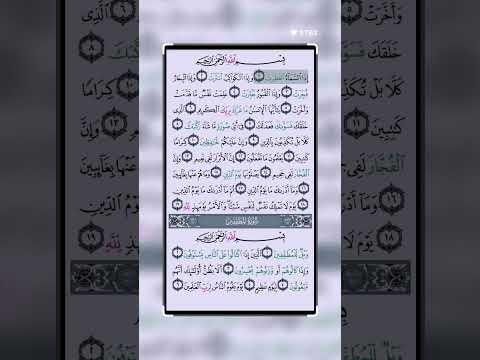 5763
بِسْمِ ٱللَّهِ ٱلرَّحْمَٰنِ ٱلرَّحِيمِ
إِذَا ٱلسَّمَآءُ ٱنفَطَرَتْ ١ وَإِذَا ٱلْكَوَاكِبُ ٱنتَثَرَتْ ٢ وَإِذَا ٱلْبِحَارُ
فُجِّرَتْ ٣ وَإِذَا ٱلْقُبُورُ بُعْثِرَتْ ٤ عَلِمَتْ نَفْسٌ مَّا قَدَّمَتْ
وَأَخَّرَتْ ٥ يَٰٓأَيُّهَا ٱلْإِنسَٰنُ مَا غَرَّكَ بِرَبِّكَ ٱلْكَرِيمِ ٦ ٱلَّذِى
خَلَقَكَ فَسَوَّىٰكَ فَعَدَلَكَ ٧ فِىٓ أَىِّ صُورَةٍ مَّا شَآءَ رَكَّبَكَ ٨
كَلَّا بَلْ تُكَذِّبُونَ بِٱلدِّينِ ٩ وَإِنَّ عَلَيْكُمْ لَحَٰفِظِينَ ١٠ كِرَامًا
كَٰتِبِينَ ١١ يَعْلَمُونَ مَا تَفْعَلُونَ ١٢ إِنَّ ٱلْأَبْرَارَ لَفِى نَعِيمٍ ١٣ وَإِنَّ
ٱلْفُجَّارَ لَفِى جَحِيمٍ ١٤ يَصْلَوْنَهَا يَوْمَ ٱلدِّينِ ١٥ وَمَا هُمْ عَنْهَا بِغَآئِبِينَ
١٦ وَمَآ أَدْرَىٰكَ مَا يَوْمُ ٱلدِّينِ ١٧ ثُمَّ مَآ أَدْرَىٰكَ مَا يَوْمُ ٱلدِّينِ
١٨ يَوْمَ لَا تَمْلِكُ نَفْسٌ لِّنَفْسٍ شَيْـًٔا وَٱلْأَمْرُ يَوْمَئِذٍ لِّلَّهِ ١٩
بِسْمِ ٱللَّهِ ٱلرَّحْمَٰنِ ٱلرَّحِيمِ
وَيْلٌ لِّلْمُطَفِّفِينَ ١ ٱلَّذِينَ إِذَا ٱكْتَالُوا۟ عَلَى ٱلنَّاسِ يَسْتَوْفُونَ ٢
وَإِذَا كَالُوهُمْ أَو وَّزَنُوهُمْ يُخْسِرُونَ ٣ أَلَا يَظُنُّ أُو۟لَٰٓئِكَ أَنَّهُم
مَّبْعُوثُونَ ٤ لِيَوْمٍ عَظِيمٍ ٥ يَوْمَ يَقُومُ ٱلنَّاسُ لِرَبِّ ٱلْعَٰلَمِينَ ٦